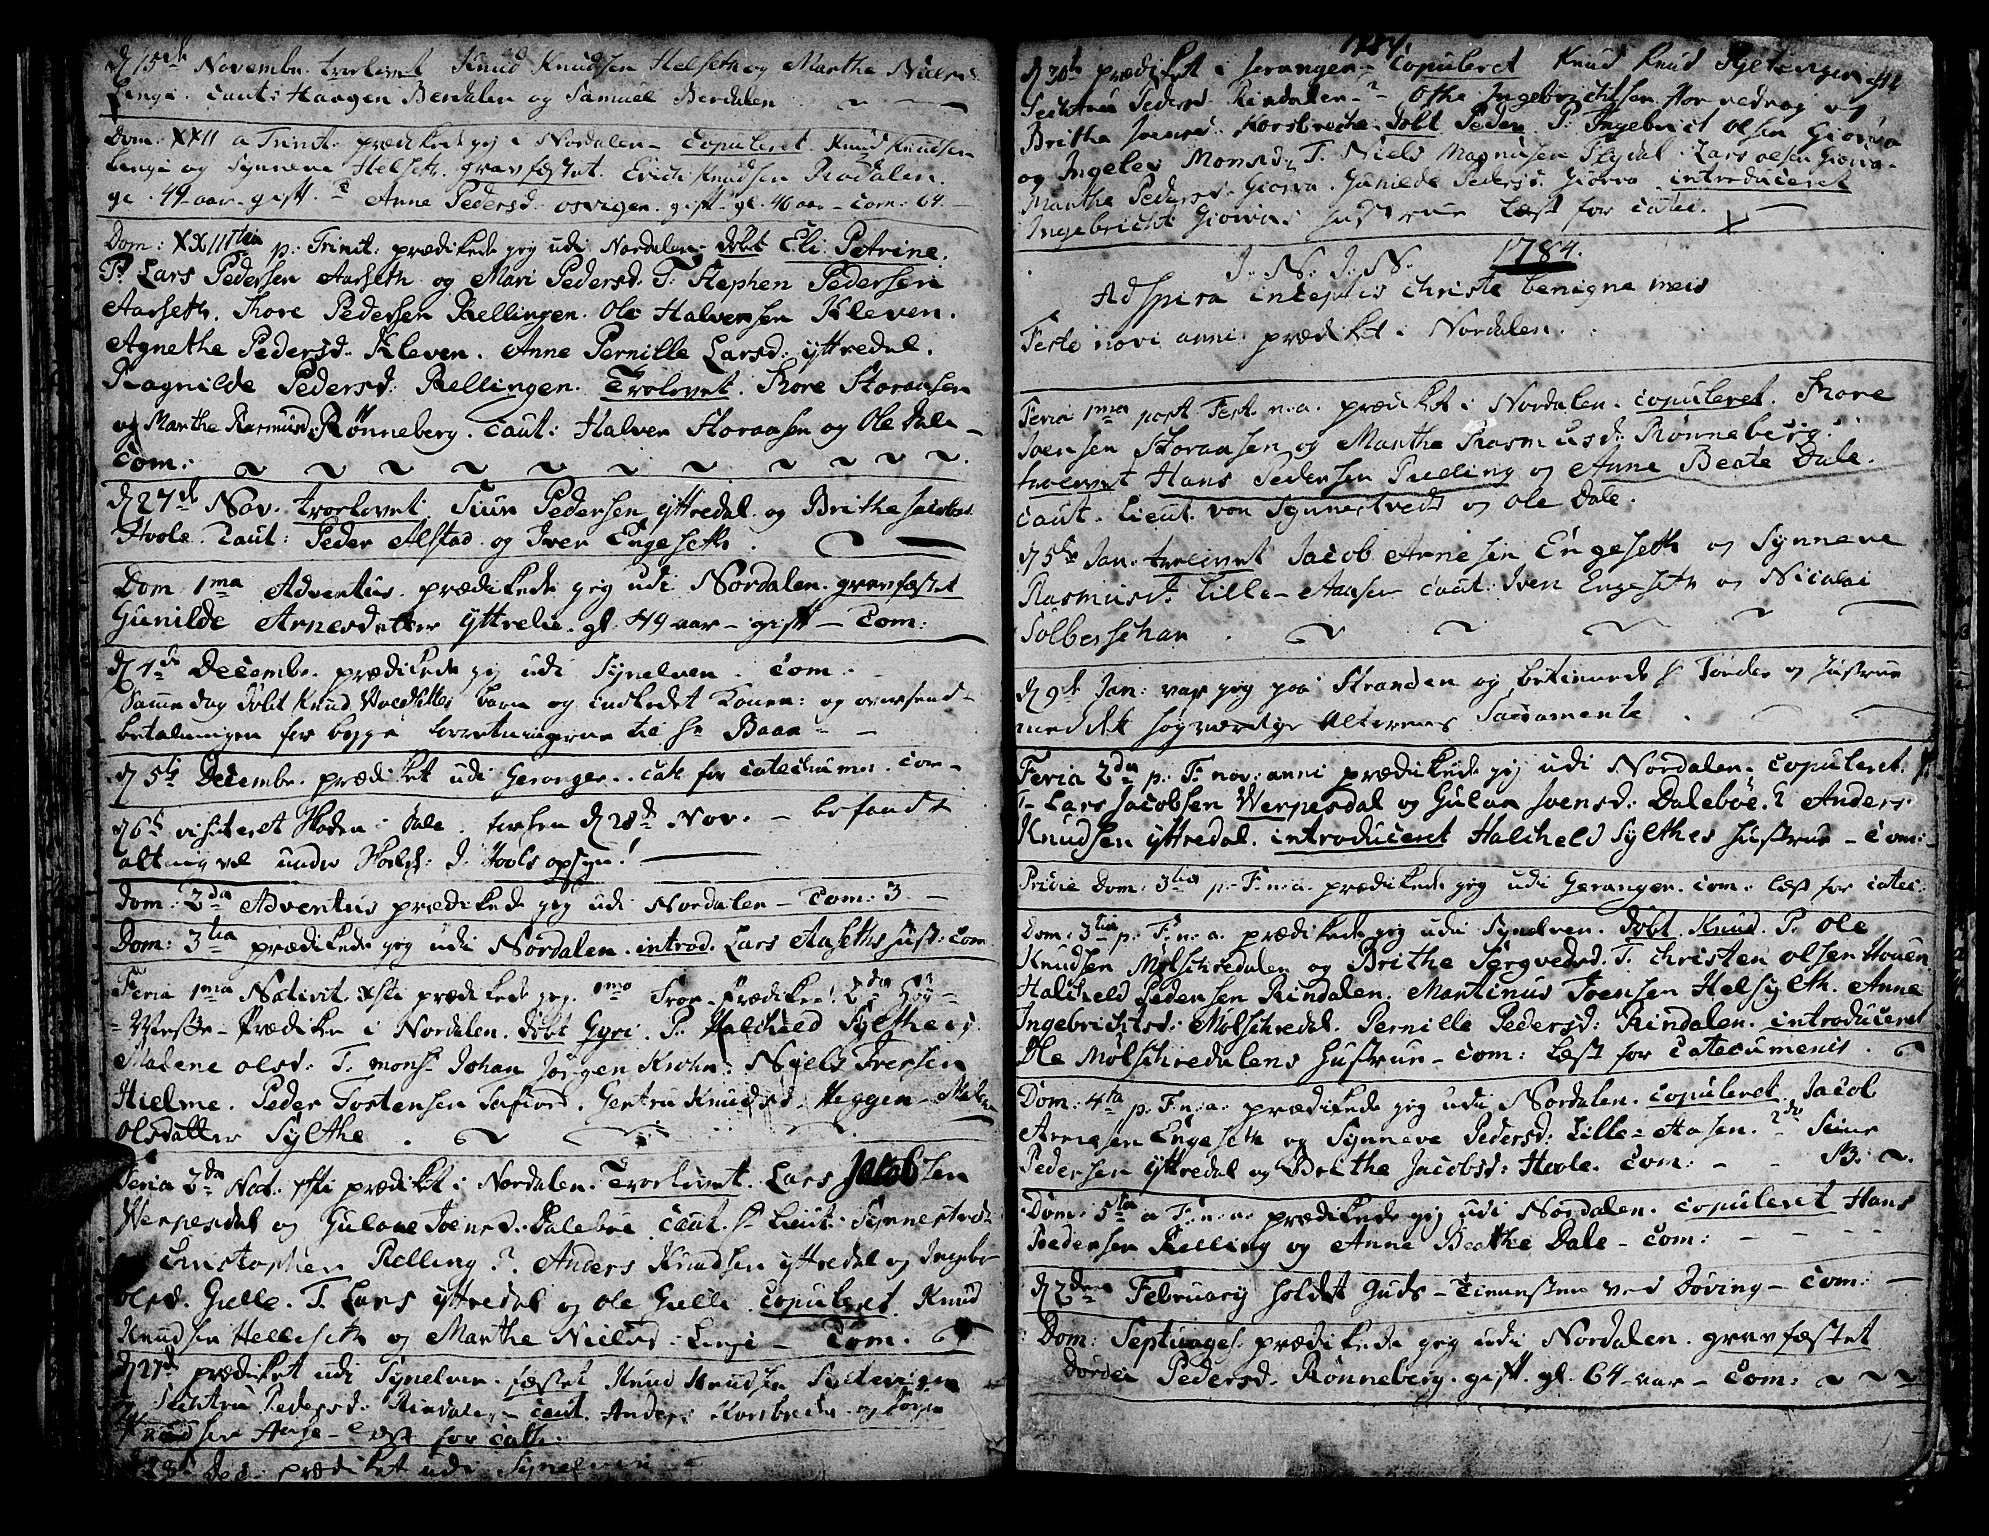 d 15de Novembr. trolovet Knud Knudsen Helseth og Marthe Nielsd.
Linge. Caut: Haagen Berdalen og Samuel Berdalen
Dom: XXII a Trinit: prædikede jeg i Nordalen. Copuleret. Knud Knudsen
Linge og Synneve Helseth. gravfæstet. Erich Knudsen Rødalen.
gl. 49 aar. gift. 2 Anne Pedersd. osvigen. gift. gl. 40 aar - Com: 64
Dom: XXIIItia p. Trinit: prædikede jeg udi Nordalen. döbt Eli Petrine.
P. Lars Pedersen Aarseth og Mari Pedersd. T. Stephen Pedersen
Aarseth. Thore Pedersen Rellingen. Ole Halvorsen Kleven.
Agnethe Pedersd. Kleven. Anne Pernille Larsd: yttredal.
Ragnilde Pedersd: Rellingen. Trolovet. Thore Storaasen
og Marthe Rasmusd: Rönneberg. Caut: Halvor Storaasen og Ole Dale -
Com:
d 27de Nov. trolovet. Siur Pedersen yttredal og Brithe Jacobsd.
Hoole. Caut: Peder Alstad og Iver Engeseth.
Dom 1ma Adventus prædikede jeg udi Nordalen. gravfæstet
Gunilde Arnesdatter yttrelie. gl. 49 aar - gift - Com:
d 4de Decembr. prædikede jeg udi Synelven. Com:
Samme dag döbt Knud barn og indledet Konen: og oversend-
betalningen for begge forretningerne til Hr Baan
d 5te Decembr. prædiket udi Geranger. cate for catechumen. com-
d 6te visiteret Skolen i Dale. d 28de Nov. - befandt
alting vel under Skoleh: J. Hools opsyn!
Dom: 2da Adventus prædikede jeg udi Nordalen - Com: 3 -
Dom: 3tia prædikede jeg udi Nordalen. introd. Lars Aaseths hust: Com
Feria 1ma Nativit. Xsti prædikede jeg. 1mo Froe-Prædiken! 2do Høy-
-Messe-Prædiken i Nordalen. döbt Gyri. P. Halchield Sylthe og
Malene olsd. T. monsr Johan Jørgen Krohn. Niels Iversen
Hielme. Peder Tostensen Tafiord. Gertru Knudsd. Heggen. Malene
olsdatter Sylthe.
Feria 3da Nat. Xsti prædikt i Nordalen. Trolovet. Lars Jacobsen
Werpesdal og Gulaue Joensd. Dalebøe Caut. Hr Lieut: Synnestvedt
Christopher Relling 2. Anders Knudsen yttredal og Ingebor
olsd. Gielle. T. Lars yttredal og Ole Gielle. Copuleret. Knud
Knudsen Helleseth og Marthe Nielsd: Linge - Com.
d 27de prædiket udi Synelven. fæstet Knud Knudsen
og Sichtru Pedersd. Rindalen - Caut. Anders Korsbreche og
Knudsen - læst for Cate:
d 28de Dec. prædiket udi Synelven
1784.
d 30te prædiket i Geranger. Copuleret Knud Knud
Sichtru Pedersd. Rindalen - 2 Othe Ingebrichtsen og
Brithe Korsbreche. Döbt Peder P: Ingebrict Olsen Giörva
og Ingeler Monsd. T. Niels Magnusen Flydal. Lars olsen Giörva.
Marthe Pedersd. Giörva. Gunilde Pedersd. Giörva. introduceret
Ingebricht Giörvas hustrue læst for catec.
J. N. J. N. 1784.
Adspira inceptis Christe benigne meis
Festo novi anni prædikt i Nordalen.
Feria 1ma post. Fest. n. a. prædikt i Nordalen. copuleret. Thore
Joensen Storaasen og Marthe Rasmusd: Rönneberg.
trolovet Hans Pedersen Relling og Anne Beate Dale.
Caut. Lieut. von Synnestvedt og ole Dale.
d 5te Jan. trolovet Jacob Arnesen Engeseth og Synneve
Rasmusd. Lille-Aasen Caut: Iver Engeseth og Nicolai
Solbergschan
d 9de Jan: var jeg paa Stranden og betienede Hr Tönder og hustrue
med det højværdige Alterens Sacramente.
Feria 2da p. F. nov: anni prædikede jeg udi Nordalen. copuleret.
Lars Jacobsen Werpesdal og Gulaue Joensd: Dalebøe. 2 Anders
Knudsen yttredal. introduceret Halchield Sylthes hustrue - Com:
Pridie Dom: 3tia p. F. n. a. prædikede jeg udi Geranger. com. læst for catec:
Dom: 3tia p. F. n. a. prædikede jeg udi Synelven. döbt Knud. P. Ole
Knudsen Mölschredalen og Brithe Sergvedsd. T. Christen olsen Hoven
Halchield Pedersen Rindalen. Martinus Joensen Helsylth. Anne
Ingebrichtsd: Mölschredal. Pernille Pedersd: Rindalen. introduceret
Ole Mölschredalens hustrue - com: læst for Catecumenis.
Dom: 4ta p. F. n. a. prædikede jeg udi Nordalen. copuleret. Jacob
Arnesen Engeseth og Synneve Pedersd: Lille-Aasen. 2do Siur
Pedersen yttredal og Brithe Jacobsd: Hoole. Com: - - 13.
Dom: 5ta a F. n. a. prædikede jeg udi Nordalen. copuleret Hans
Pedersen Relling og Anne Beathe Dale - Com:
d 2den February holdet Guds-Tienesten ved Döving - Com:
Dom: Septuages. prædikede jeg udi Nordalen. gravfæstet
Dordei Pedersd. Rönneberg. gift. gl. 64 aar - Com: